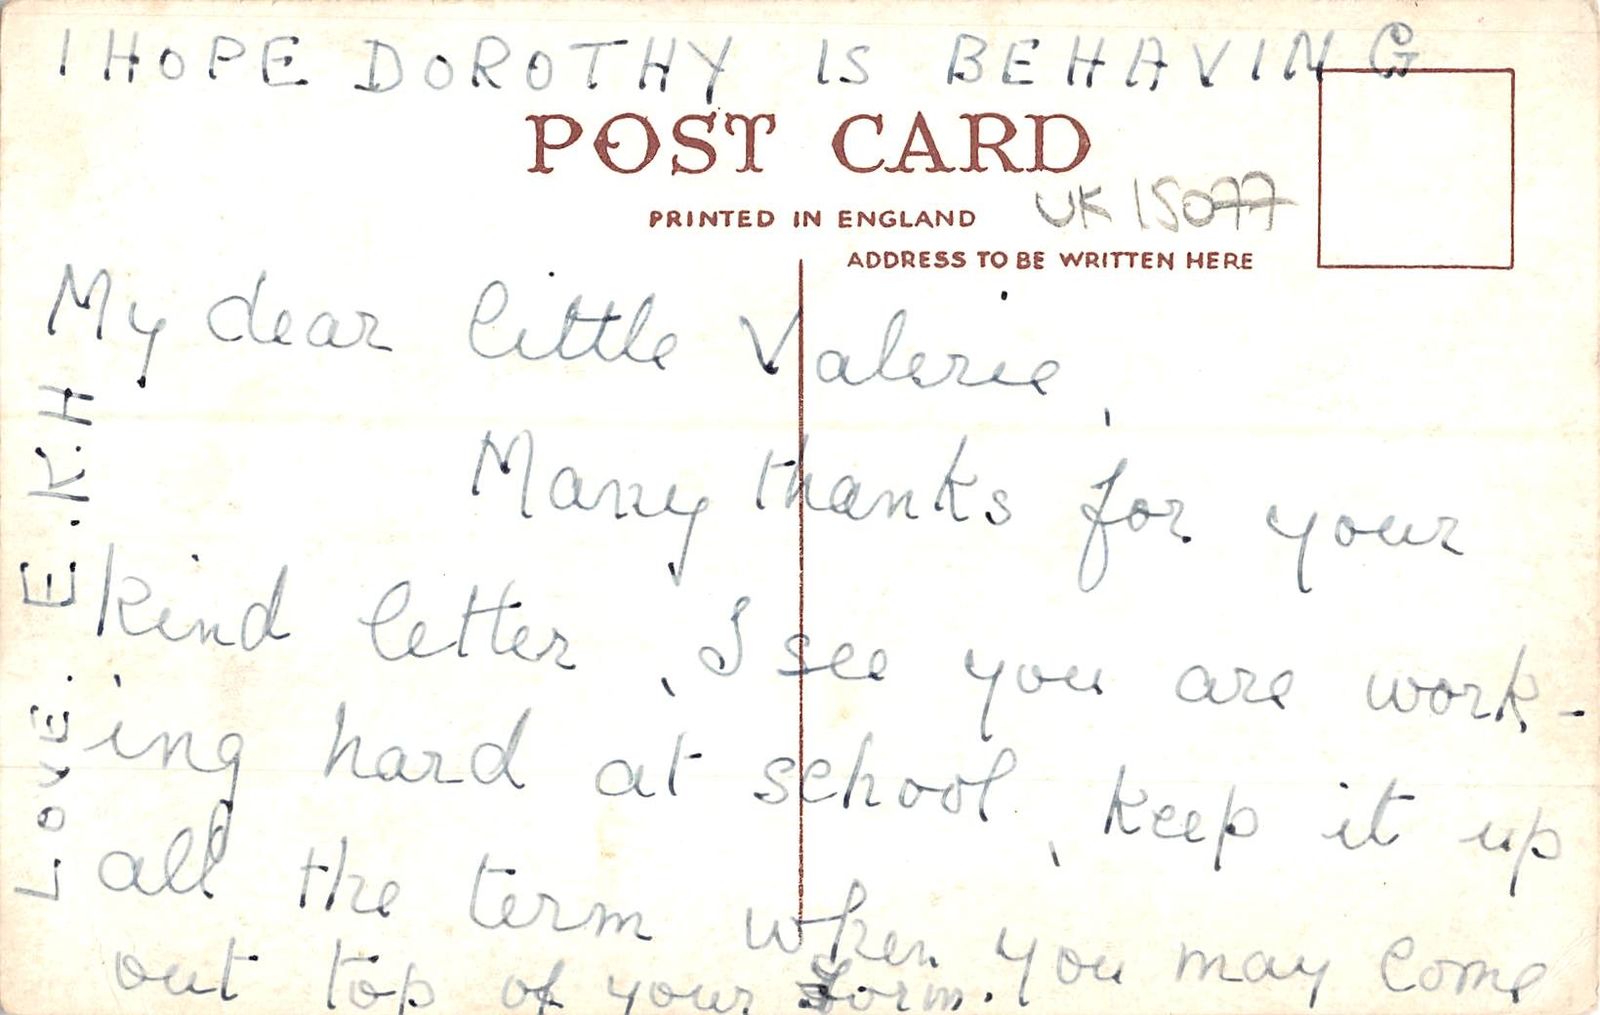 I HOPE DOROTHY IS BEHAVING
POST CARD
PRINTED IN ENGLAND
UK 15077
ADDRESS TO BE WRITTEN HERE
My dear little Valerie,
Many thanks for your
kind letter, I see you are work-
ing hard at school, keep it up
all the term when you may come
out top of your form.
LOVE. E.K.H